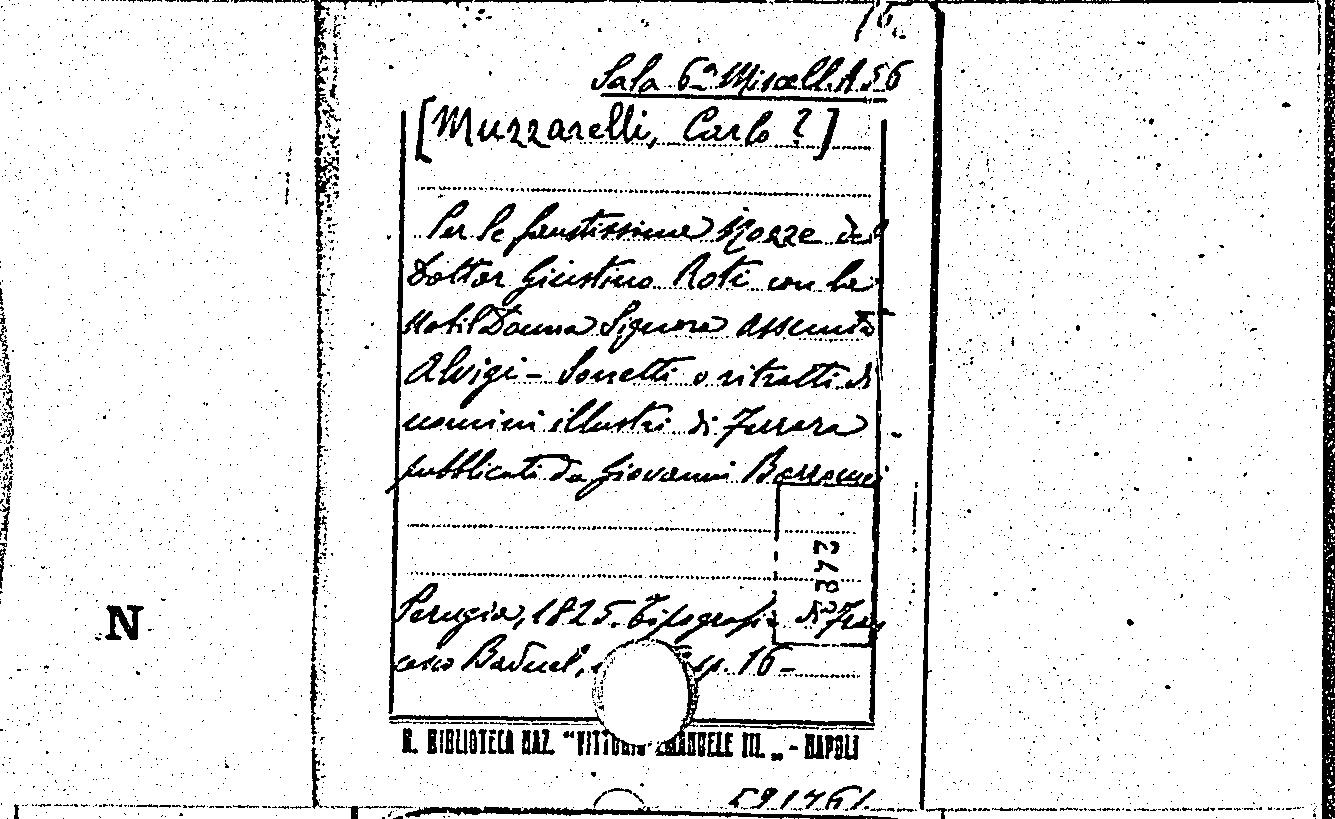 16
Sala 6ª Miscell. A 56
[Muzzarelli, Carlo ?]
Per le faustissime Nozze del
Dottor Giustino Roti con la
Nobil Donna Signora Assunta
Alvigi - Sonetti o ritratti di
uomini illustri di Ferrara
pubblicati da Giovanni
2482
Perugia, 1825. Tipografia di Fran
cesco Baduel, p. 16 -
N
R. BIBLIOTECA NAZ. "VITTORIO EMANUELE III. „ - NAPOLI
591761